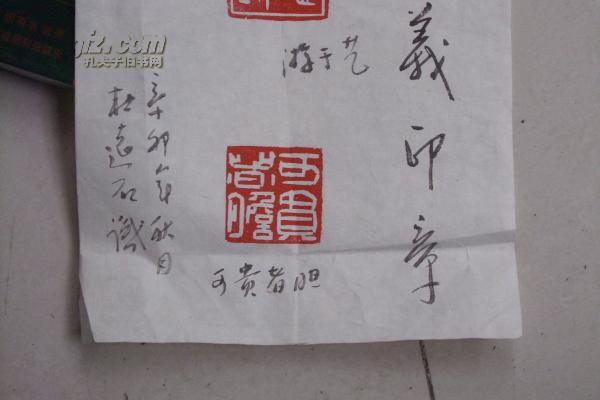 義印章
游于艺
可貴者膽
可贵者胆
辛卯年秋月
杜遠石識
孔夫子旧书网